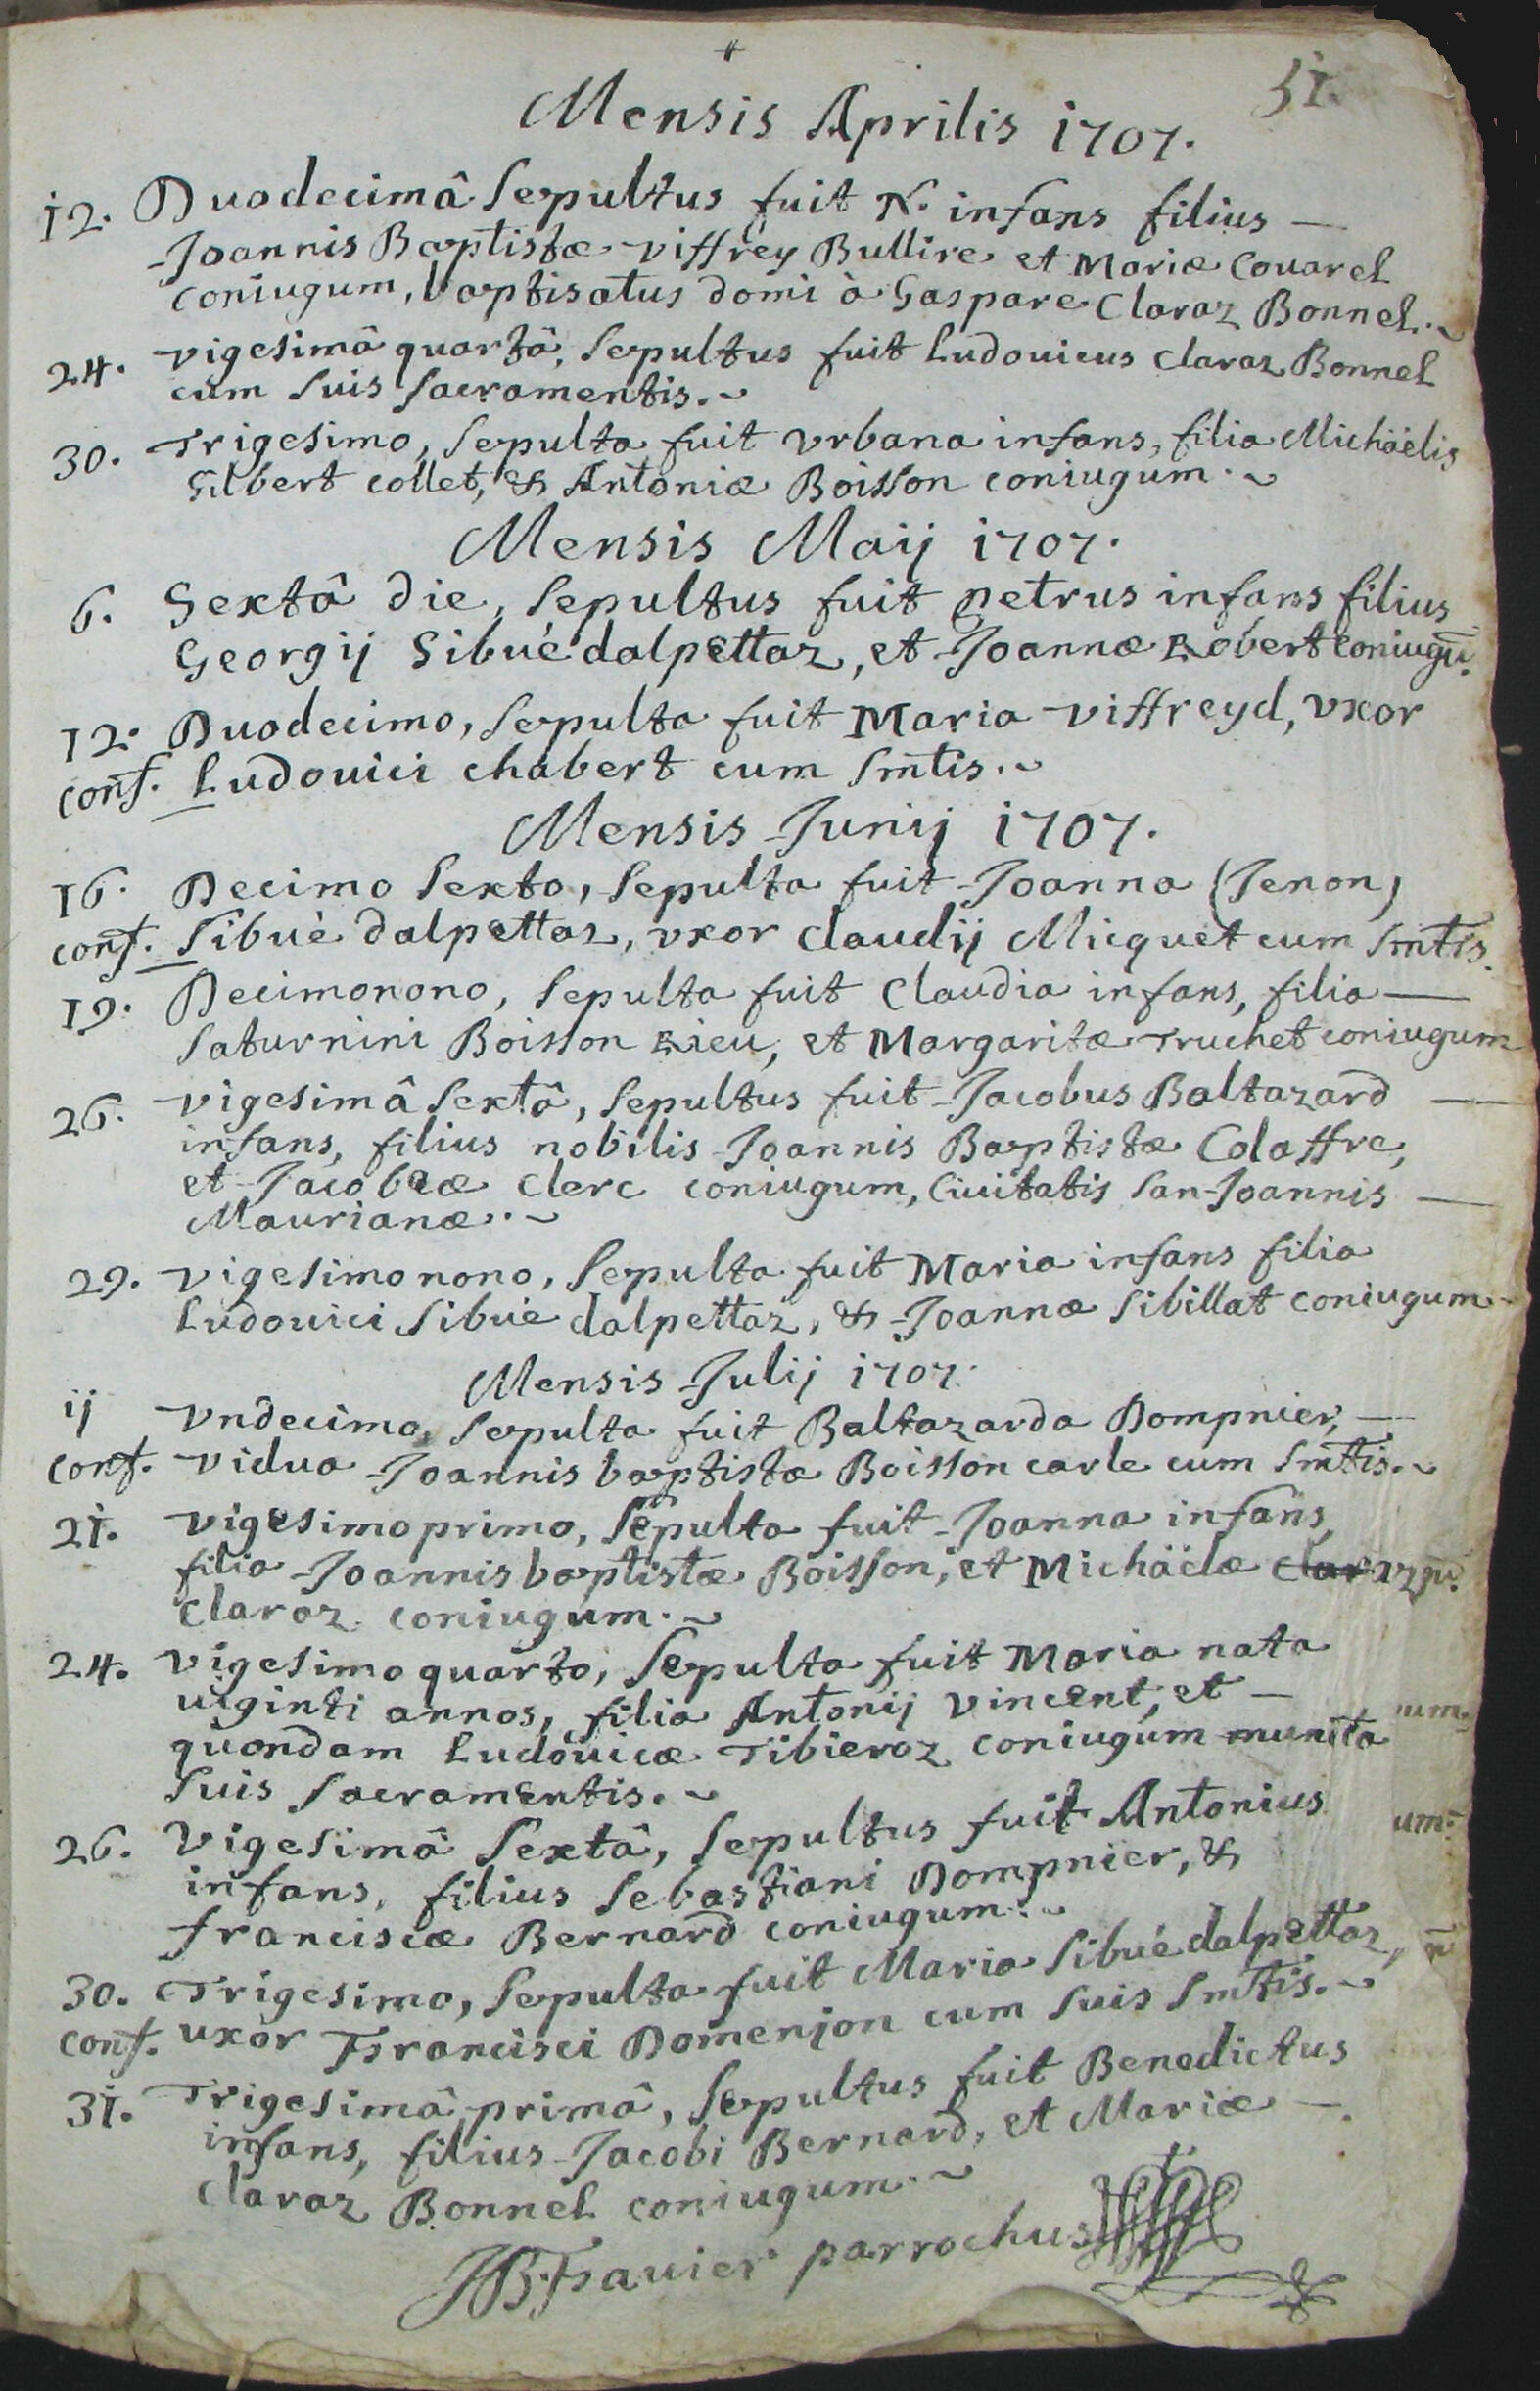 51.
Mensis Aprilis 1707.
12. Duodecimâ Sepultus fuit N. infans filius —
Joannis Baptistæ Viffrey Bullire et Mariæ Couarel
coniugum, baptisatus domi à Gaspare Claraz Bonnel.~
24. vigesimâ quartâ, Sepultus fuit Ludouicus Claraz Bonnel
cum Suis Sacramentis.~
30. Trigesimo, Sepulta fuit vrbana infans, filia Michäelis
Gilbert collet, & Antoniæ Boisson coniugum.~
Mensis Maij 1707.
6. Sextâ die, Sepultus fuit petrus infans filius
Georgij Sibué dalpettaz, et Joannæ Robert coniugū.
12. Duodecimo, Sepulta fuit Maria Viffreyd, vxor
conf. Ludouici chabert cum Smtis.~
Mensis Junij 1707.
16. Decimo Sexto, Sepulta fuit Joanna (Jenon)
conf. Sibué dalpettaz, vxor Claudij Micquet cum Smtis.
19. Decimonono, Sepulta fuit Claudia infans, filia —
Saturnini Boisson Rieu, et Margaritæ Truchet coniugum
26. vigesimâ Sextâ, Sepultus fuit Jacobus Baltazard —
infans, filius nobilis Joannis Baptistæ Colaffre,
et Jacobeæ Clerc coniugum, Ciuitatis San-Joannis —
Maurianæ.~
29. vigesimonono, Sepulta fuit Maria infans filia
Ludouici Sibué dalpettaz, & Joannæ Sibillat coniugum~
Mensis Julij 1707.
ij Vndecimo, Sepulta fuit Baltazarda Dompnier, —
conf. vidua Joannis baptistæ Boisson carle cum Smtis.~
21. vigesimoprimo, Sepulta fuit Joanna infans,
filia Joannis baptistæ Boisson, et Michäelæ
claraz coniugum.~
24. vigesimoquarto, Sepulta fuit Maria nata
uiginti annos, filia Antonij Vincent, et —
quondam Ludouicæ Tibieroz coniugum munita
Suis Sacramentis.~
26. Vigesimâ Sextâ, Sepultus fuit Antonius
infans, filius Sebastiani Dompnier, &
franciscæ Bernard coniugum.~
30. Trigesimo, Sepulta fuit Maria Sibué dalpettaz,
conf. uxor Francisci Domenjon cum Suis Smtis.~
31. Trigesimâ primâ, Sepultus fuit Benedictus
infans, filius Jacobi Bernard, et Mariæ —
Claraz Bonnel coniugum.~
JB. Favier parrochus